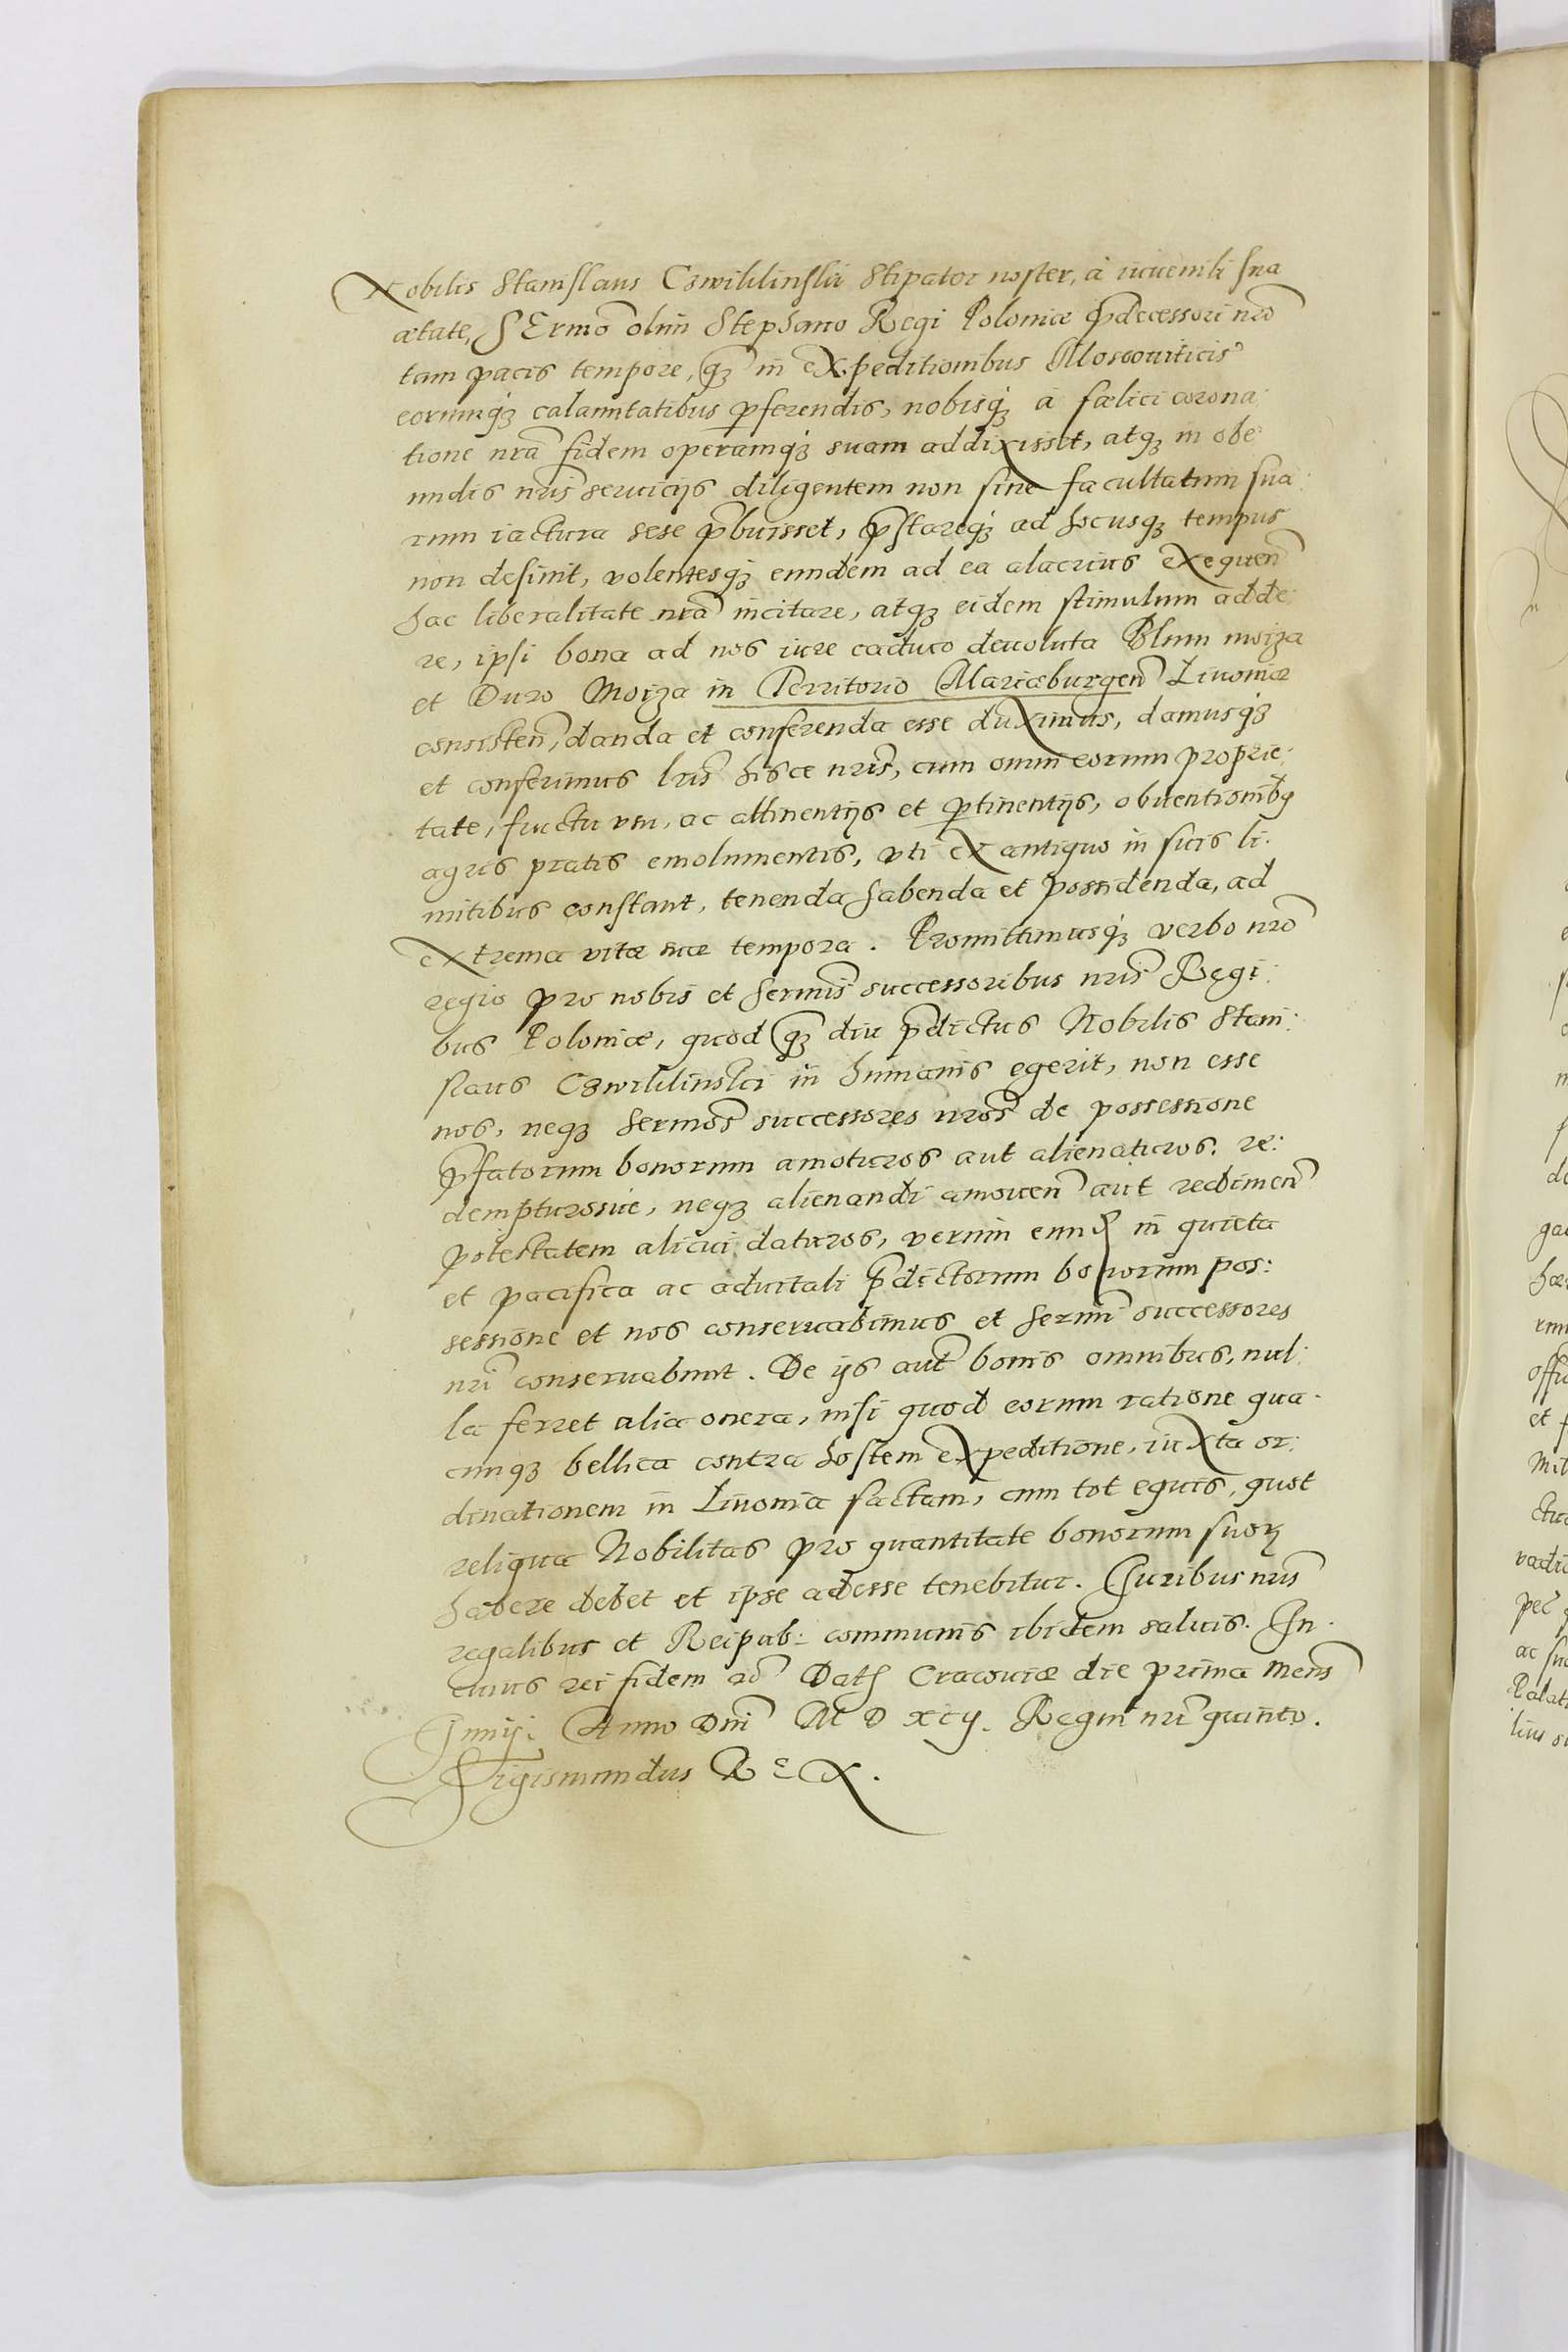 Nobilis Stanislaus Czwililinskii Stipator noster, à iuuenili sua
ætate, SErmo olim Stephano Regi Poloniæ p̃decessori nr̃o
tam pacis tempore, q̃ꝫ in expeditionibus Moscouiticis
eorumqꝫ calamitatibus ꝑferendis, nobisqꝫ à fælici corona:
tione nr̃a fidem operamqꝫ suam addixisset, atqꝫ in obe
undis nr̃is seruicijs diligentem non sine facultatum sua:
rum iactura sese p̃buisset, p̃stareqꝫ ad hocusqꝫ tempus
non desinit, volentesqꝫ eundem ad ea alacrius exequen̄
hac liberalitate nr̃a incitare, atqꝫ eidem stimulum adde:
re, ipsi bona ad nos iure caduco deuoluta Blum moiza
et Duro Moiza in Territorio Mariæburgen̄ Liuoniæ
consisten̄, danda et conferenda esse duximus, damusqꝫ
et conferimus lr̃is hisce nr̃is, cum omni eorum proprie:
tate, fructu vsu, ac attinentijs et ꝑtinentijs, obuentionibꝫ
agris pratis emolumentis, vti ex antiquo in suis li:
mitibus constant, tenenda habenda et possidenda, ad
extrema vitæ suæ tempora. Promittimusqꝫ verbo nr̃o
regio pro nobis et Sermis successoribus nr̃is Regi:
bus Poloniæ, quod q̃ꝫ diu p̃dictus Nobilis Stani:
slaus Czwililinskii in humanis egerit, non esse
nos, neqꝫ Sermos successores nr̃os de possessione
p̃fatorum bonorum amoturos aut alienaturos, re:
dempturosue, neqꝫ alienandi amouen̄ aut redimen̄
potestatem alicui daturos, verum eund in quieta
et pacifica ac aduitali p̃dictorum bonorum pos:
sessione et nos conseruabimus et Sermi successores
nr̃i conseruabunt. De ijs aut̃ bonis omnibus, nul:
la ferret alia onera, nisi quod eorum ratione qua:
cunqꝫ bellica contra hostem expeditione, iuxta or:
dinationem in Liuonia factam, cum tot equis, quot
reliqua Nobilitas pro quantitate bonorum suoꝝ
habere debet et ipse adesse tenebitur. Iuribus nr̃is
regalibus et Reipub: communis ibidem saluis. In
cuius rei fidem &c̃ Dat Cracouiæ die prima Mens̃
Junij. Anno Dni M D xcij. Regni nr̃i quinto.
Sigismundus REX.